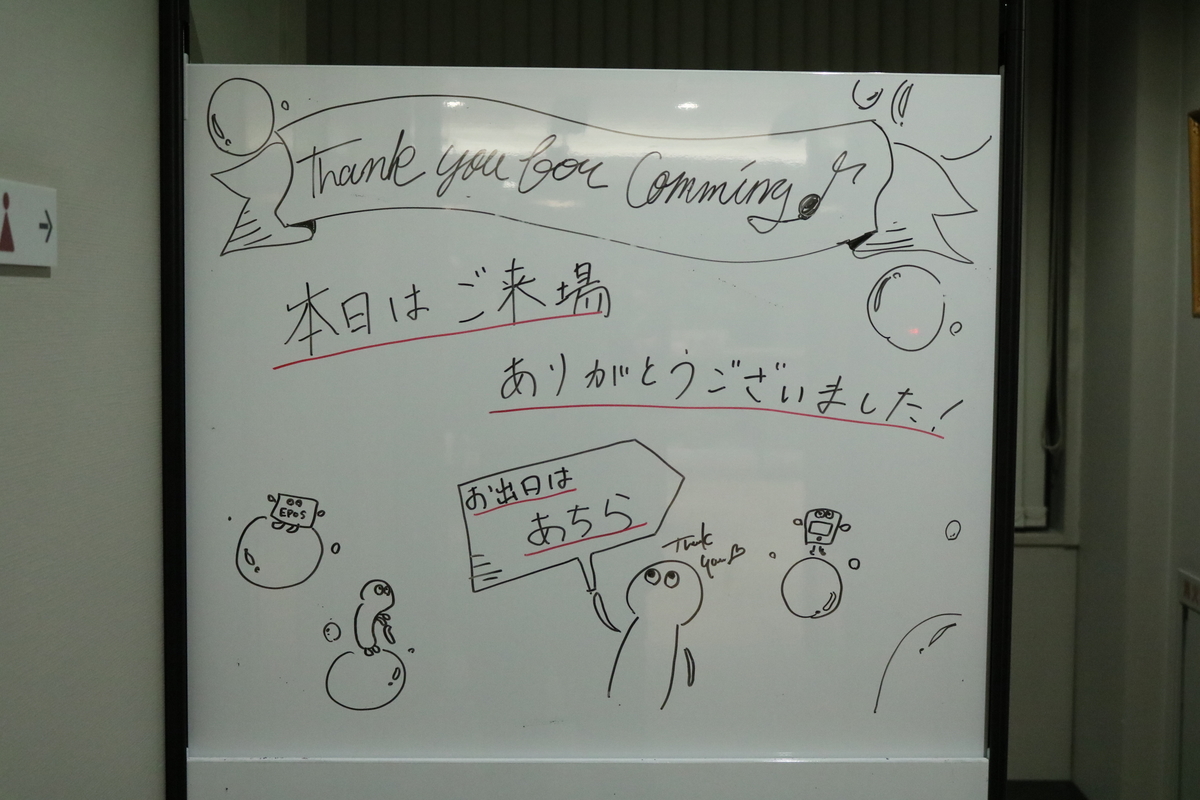 Thank you for Comming
本日はご来場
ありがとうございました!
お出日は
あちら
Thank
you
EPOS